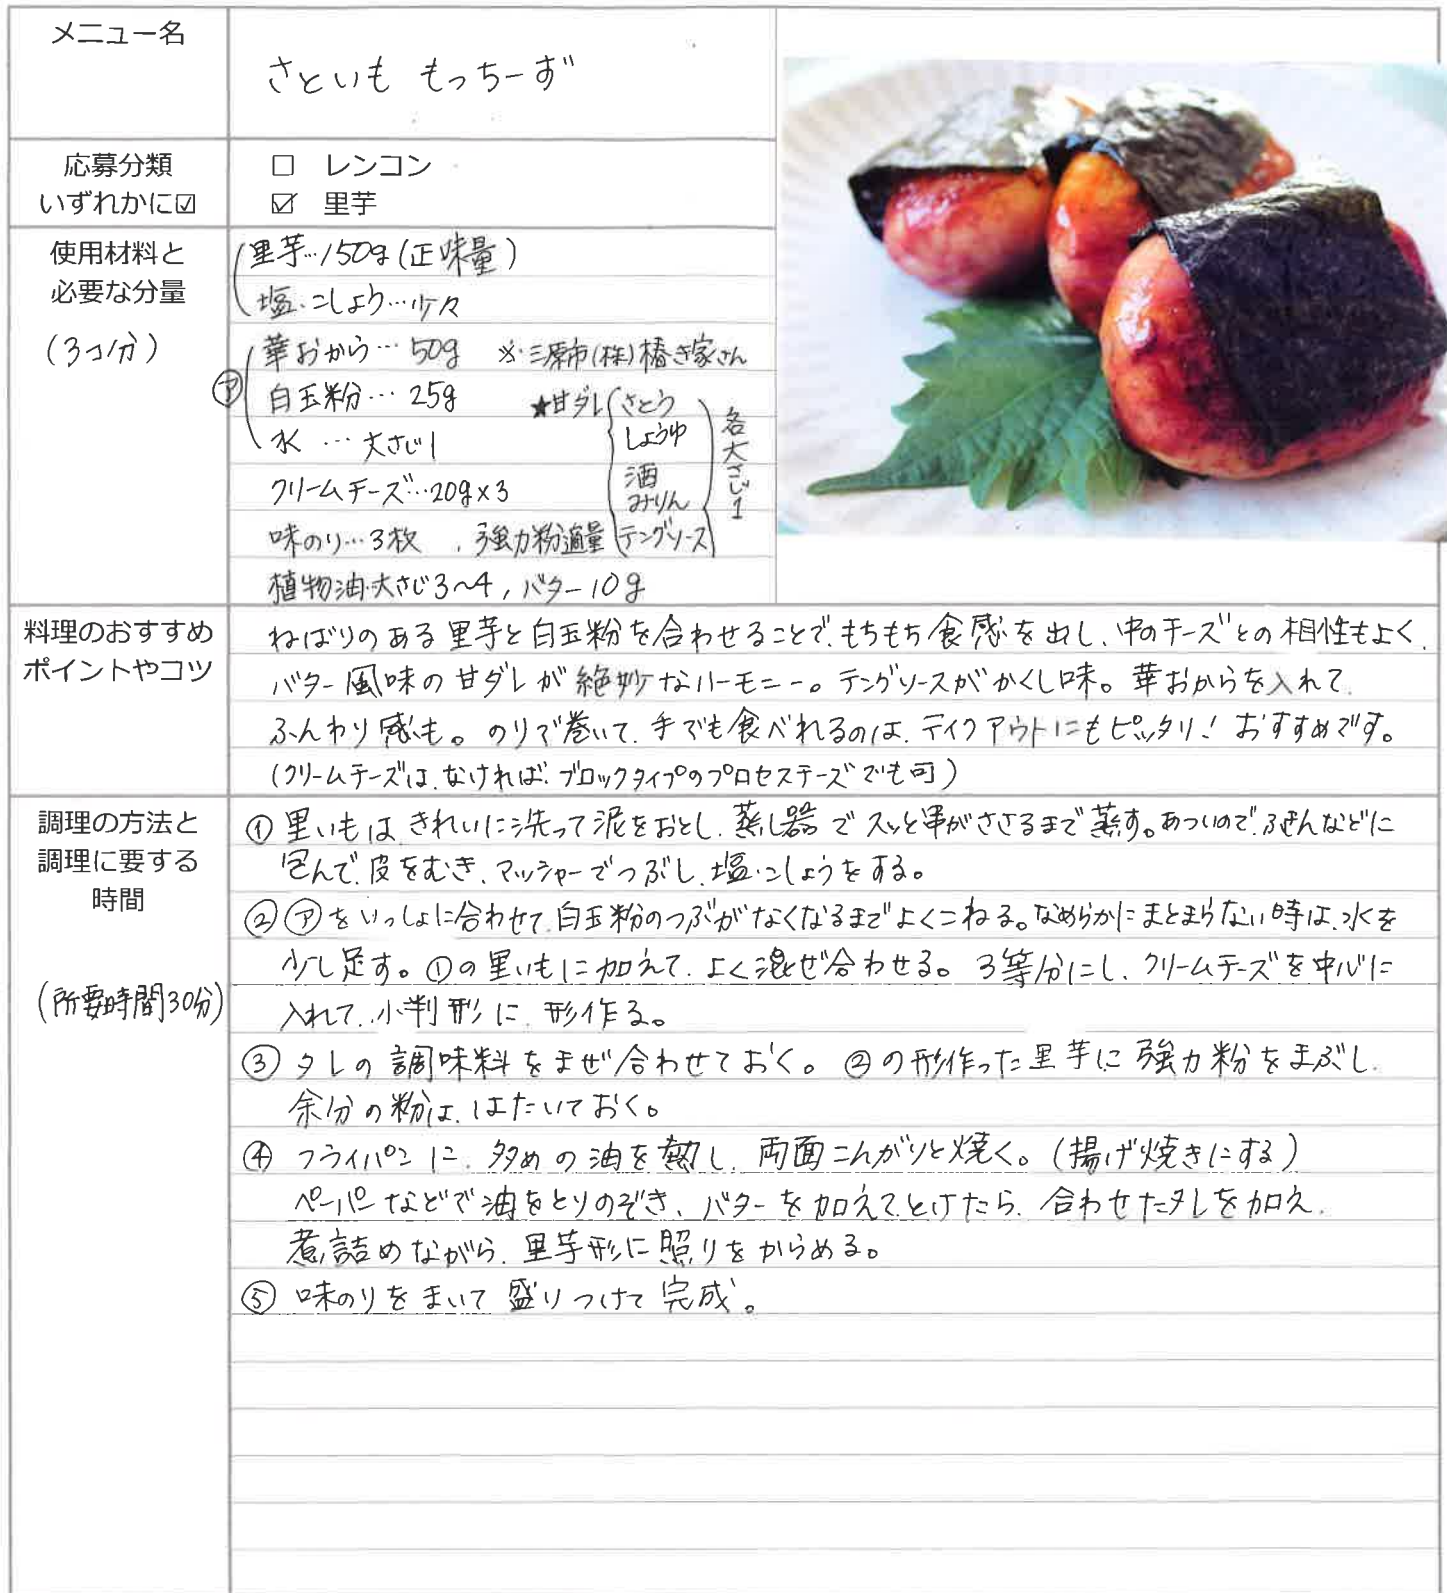 メニュー名
さといも もっちーず
応募分類
いずれかに☑
□ レンコン
☑ 里芋
使用材料と
必要な分量
(3コ分)
里芋…150g(正味量)
塩・こしょう…少々
㋐
華おから…50g ※三原市(株)椿き家さん
白玉粉…25g
水 …大さじ1
クリームチーズ…20g×3
味のり…3枚 、強力粉適量
植物油・大さじ3〜4、バター10g
★甘ダレ
さとう
しょうゆ
酒
みりん
テングソース
各大さじ1
料理のおすすめ
ポイントやコツ
ねばりのある里芋と白玉粉を合わせることで、もちもち食感を出し、中のチーズとの相性もよく、
バター風味の甘ダレが絶妙なハーモニー。テングソースがかくし味。華おからを入れて、
ふんわり感も。のりで巻いて、手でも食べれるのは、テイクアウトにもピッタリ！おすすめです。
(クリームチーズは、なければ、ブロックタイプのプロセスチーズでも可)
調理の方法と
調理に要する
時間
(所要時間30分)
①里いもは、きれいに洗って泥をおとし、蒸し器でスッと串がささるまで蒸す。あついので、ふきんなどに
包んで、皮をむき、マッシャーでつぶし、塩・こしょうをする。
②㋐をいっしょに合わせて、白玉粉のつぶがなくなるまでよくこねる。なめらかにまとまらない時は、水を
少し足す。①の里いもに加えて、よく混ぜ合わせる。3等分にし、クリームチーズを中心に
入れて、小判形に、形作る。
③タレの調味料をまぜ合わせておく。②の形作った里芋に強力粉をまぶし、
余分の粉は、はたいておく。
④フライパンに、多めの油を熱し、両面こんがりと焼く。(揚げ焼きにする)
ペーパーなどで油をとりのぞき、バターを加えてとけたら、合わせたタレを加え、
煮詰めながら、里芋形に照りをからめる。
⑤味のりをまいて盛りつけて完成。